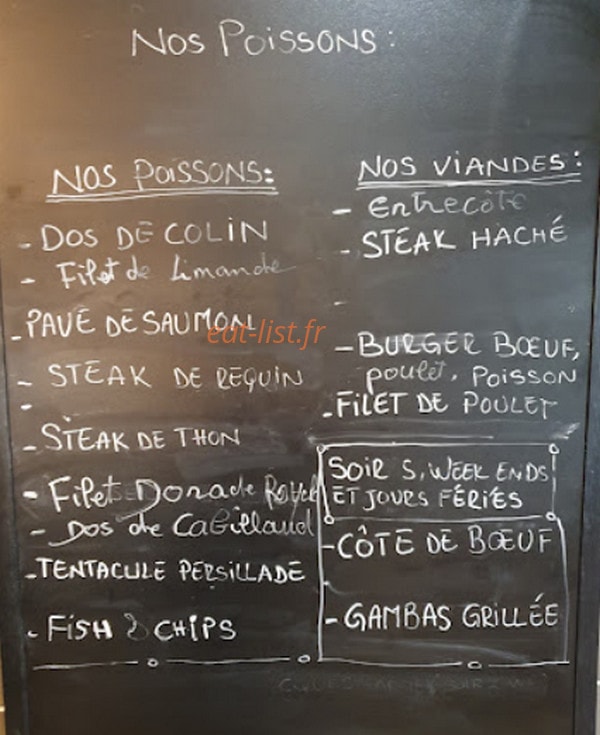 NOS POISSONS:
NOS POISSONS:
- DOS DE COLIN
- Filet de Limande
- PAVÉ DE SAUMON
- STEAK DE REQUIN
-
- STEAK DE THON
- Filet Dorade Royal
- Dos de Cabillaud
- TENTACULE PERSILLADE
- FISH & CHIPS
NOS VIANDES:
- Entrecôte
- STEAK HACHÉ
-
- BURGER BŒUF,
poulet, POISSON
- FILET DE POULET
SOIR S, WEEK ENDS
ET JOURS FÉRIÉS
- CÔTE DE BŒUF
- GAMBAS GRILLÉE
eat-list.fr